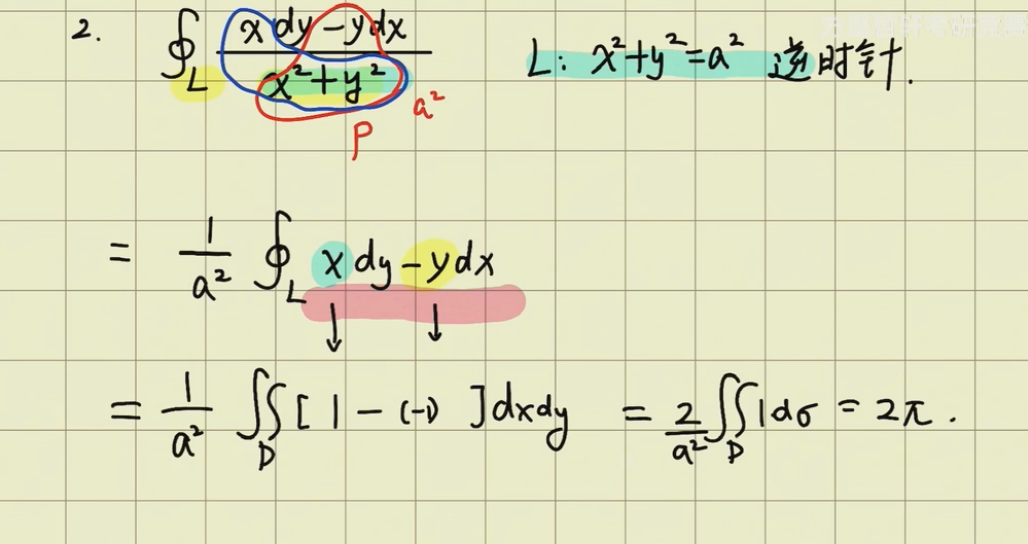 2. ∮_L (xdy-ydx)/(x²+y²) L: x²+y²=a² 逆时针.
a²
P
= 1/a² ∮_L xdy-ydx
↓ ↓
= 1/a² ∬_D [1-(-1)]dxdy = 2/a² ∬_D 1dσ = 2π.